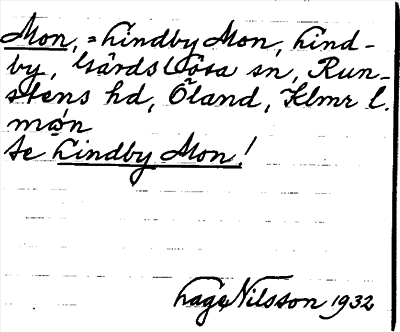 Mon, = Lindby Mon, Lind-
by, Gårdslösa sn, Run-
stens hd, Öland, Klmr l.
mån
Se Lindby Mon!
Lage Nilsson 1932